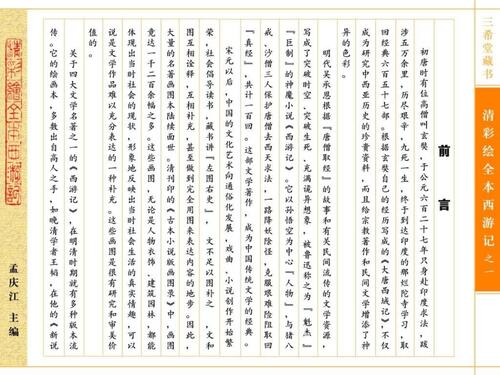 三希堂藏书
清彩绘全本西游记之一
前言
初唐时有位高僧叫玄奘，于公元六百二十七年只身赴印度求法，跋
涉五万余里，历尽艰辛，九死一生，终于到达印度的那烂陀寺学习，取
经典六百五十七部。根据玄奘自己的经历写成的《大唐西域记》，不仅
成为研究中西亚历史的珍贵资料，而且给宗教著作和民间文学增添了神
异的色彩。
明代吴承恩根据『唐僧取经』的故事和有关民间流传的文学资源，
写成了突破时空，突破生死，充满诡异想象，被鲁迅称之为『魁杰』
『巨制』的神魔小说《西游记》。它以孙悟空为中心『人物』，与猪八
戒、沙僧三人保护唐僧去西天求法，一路降妖除怪，克服艰难险阻取回
『真经』，共计一百回。这部文学著作，成为中国传统文学的经典。
宋元以后，中国的文化艺术向通俗化发展，戏曲、小说创作开始繁
荣，社会倡导读书，藏书讲『左图右史』，文不足以图补之，文和
图互相诠释，互相补充，甚至做到完全用图来表达内容的地步。因此，
大量的名著画图本陆续面世。清刊印的《古本小说版画图录》中，画图
竟达一千二百余幅之多。这些画图，无论是人物衣饰，建筑园林，都能
体现出当时社会的现状，形象地反映出当时社会生活的真实情趣，可以
说是文学作品难以充分表达的一种补充。这些画图是很有研究和审美价
值的。
关于四大文学名著之一的《西游记》，在明清时期就有多种版本流
传。它的绘画本，多数出自高人之手，如晚清学者王韬，在他的《新说
清彩绘全本西游记
孟庆江 主编